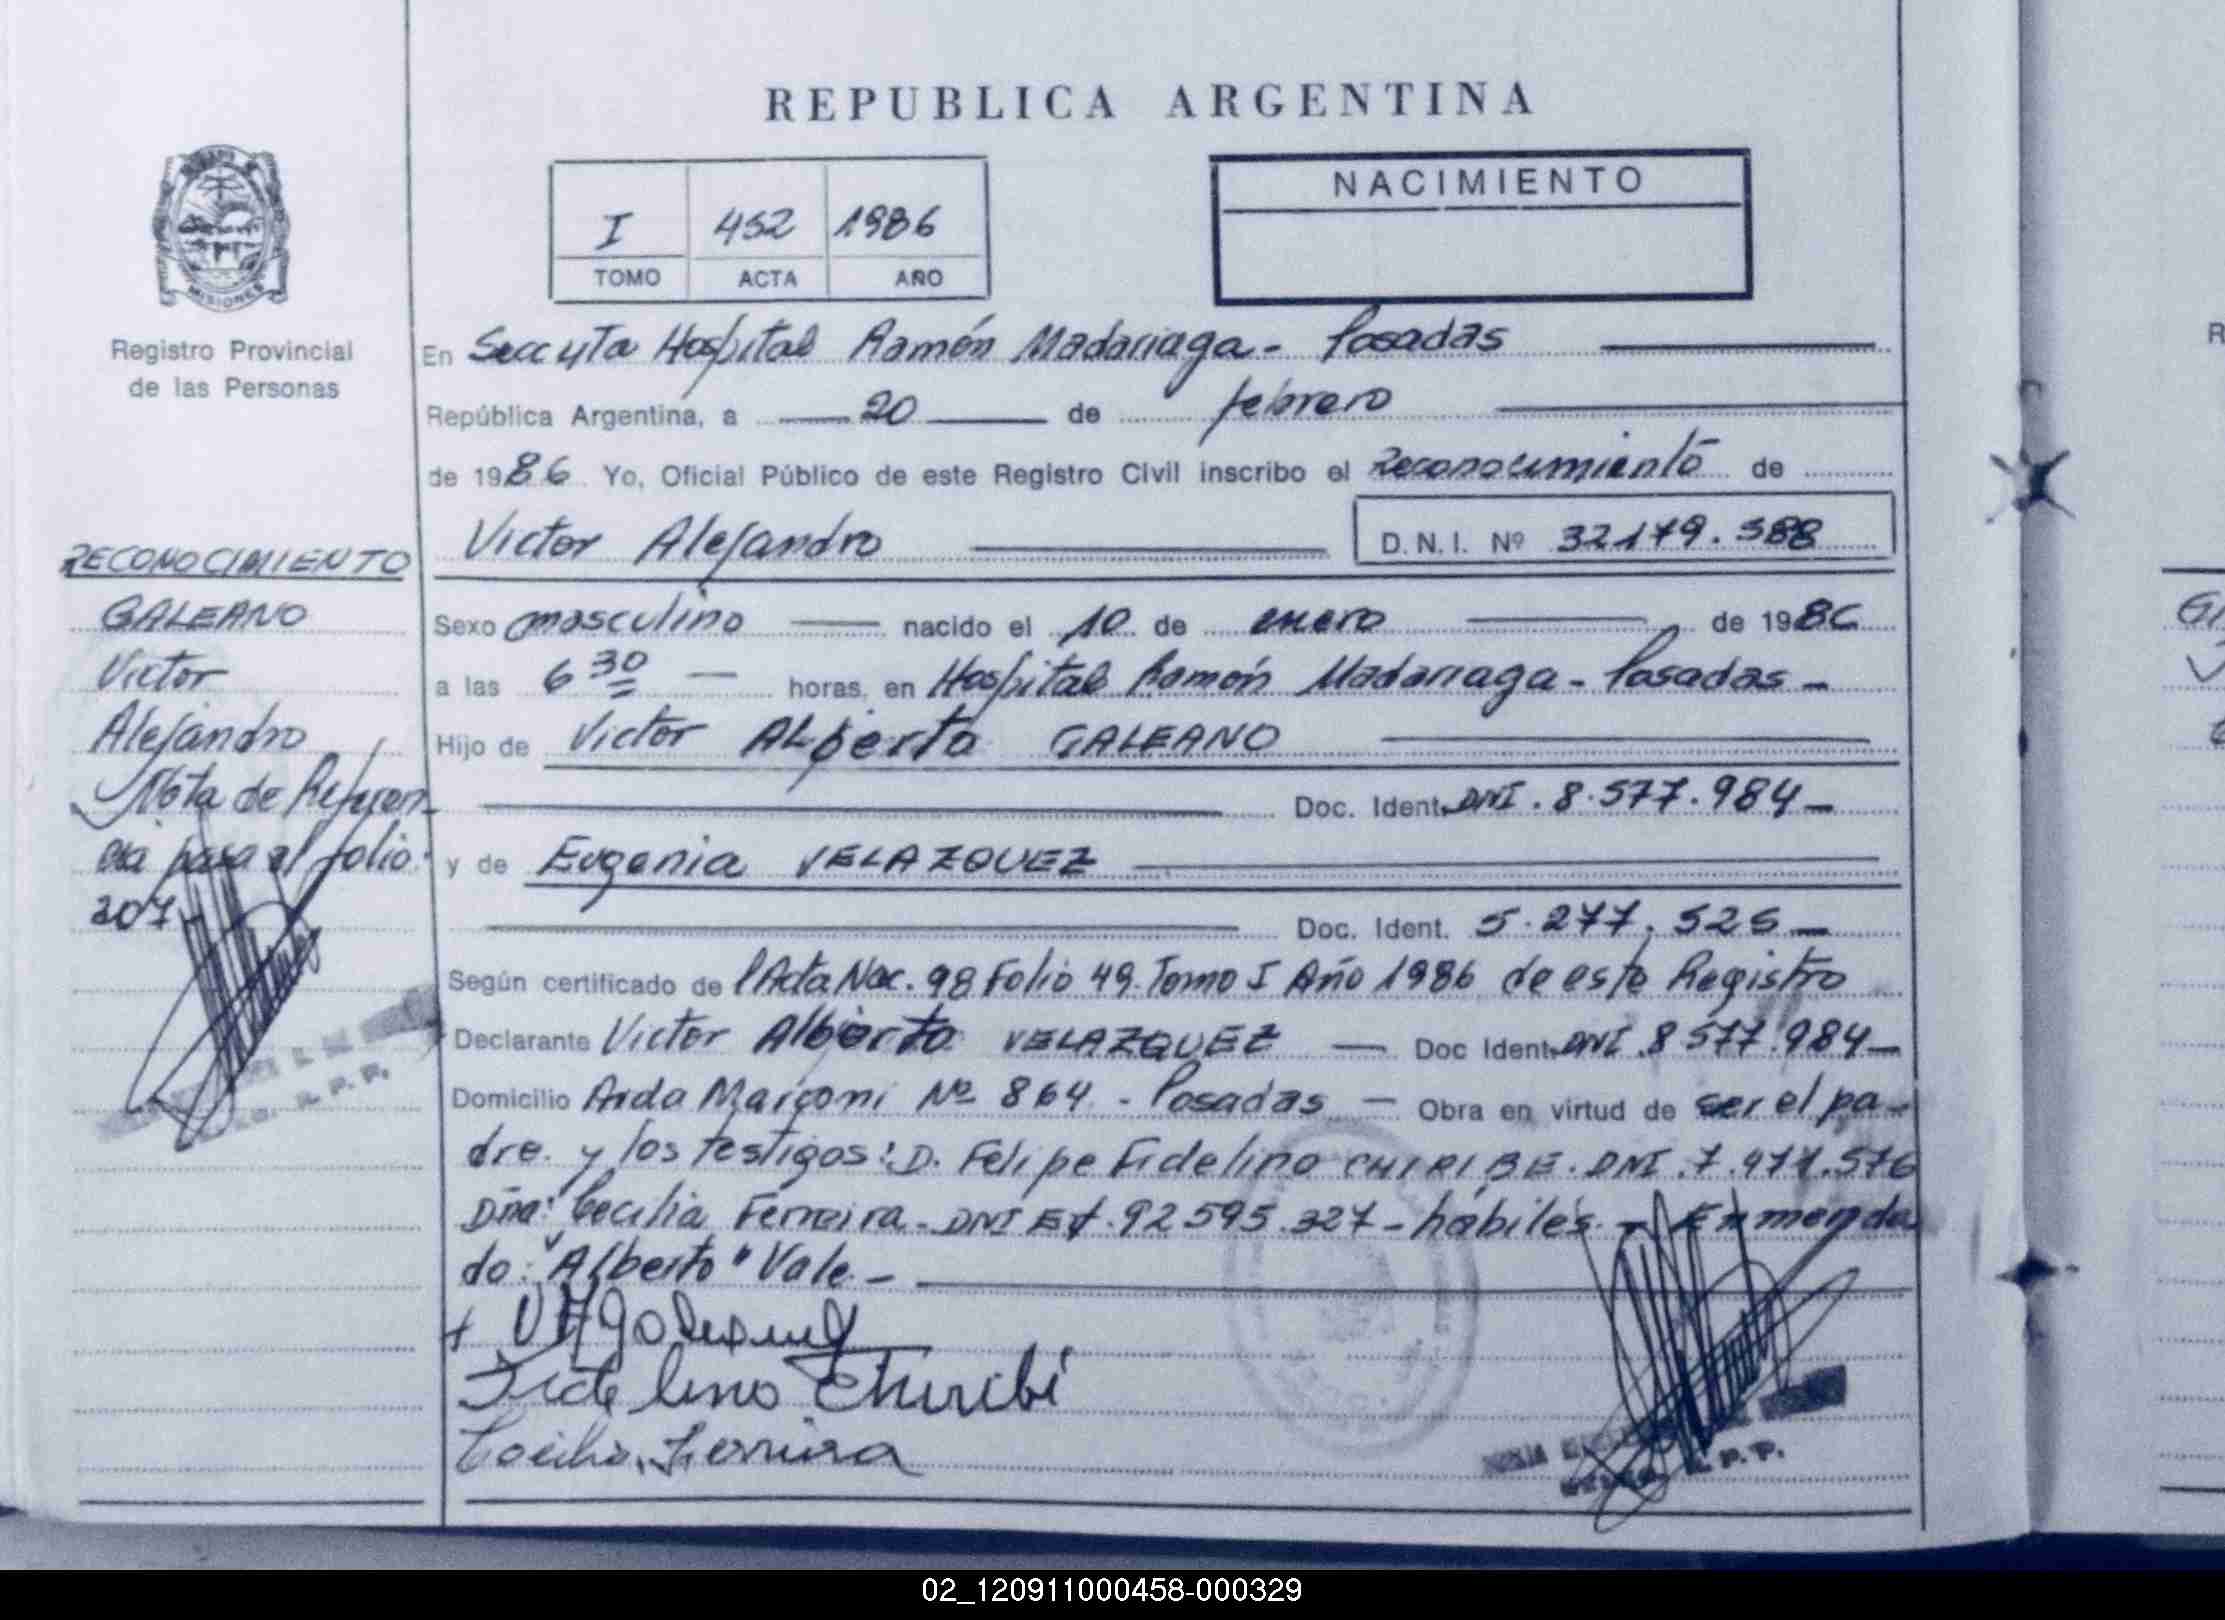 REPUBLICA ARGENTINA
MISIONES
Registro Provincial
de las Personas
I 452 1986
TOMO ACTA AÑO
NACIMIENTO
En Secc yTa Hospital Ramón Madariaga - Posadas
República Argentina, a 20 de febrero
de 1986 Yo, Oficial Público de este Registro Civil inscribo el Reconocimiento de
Victor Alejandro D.N.I. Nº 32179.588
Sexo masculino nacido el 10 de enero de 1986
a las 6 30 horas, en Hospital Ramón Madariaga - Posadas -
Hijo de Victor ALberto GALEANO
Doc. Ident. DNI. 8.577.984 -
y de Eugenia VELAZQUEZ
Doc. Ident. 5.277.525 -
Según certificado de l'Acta Nac. 98 Folio 49. Tomo I Año 1986 de este Registro
Declarante Victor Alberto VELAZQUEZ — Doc Ident. DNI. 8577.984 -
Domicilio Avda Marconi Nº 864 - Posadas — Obra en virtud de ser el pa-
dre. y los testigos: D. Felipe Fidelino CHIRIBE. DNI. 7.471.576
Dña: Cecilia Ferreira - DNI Ex. 92595.327 - hábiles. - Enmenda
do: "Alberto" Vale -
Fidelino Chiribi
Cecilia Ferreira
RECONOCIMIENTO
GALEANO
Victor
Alejandro
Nota de Referen-
cia para el folio:
207-
R. P. P.
02_120911000458-000329